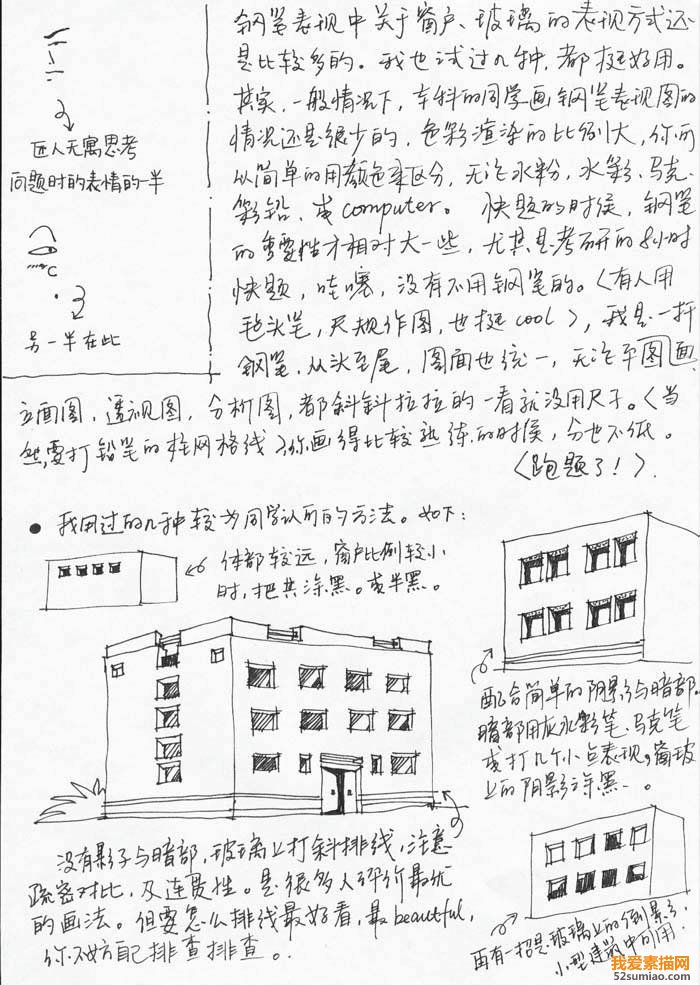 钢笔表现中关于窗户、玻璃的表现方式还
是比较多的。我也试过几种，都挺好用。
其实，一般情况下，本科的同学画钢笔表现图的
情况还是很少的，色彩渲染的比例大，你可
以简单的用颜色来区分，无论水粉，水彩、马克、
彩铅，或computer。快题的时候，钢笔
的重要性才相对大一些，尤其是考研的8小时
快题，哇噻，没有不用钢笔的。〈有人用
毡头笔，尺规作图，也挺cool〉，我是一杆
钢笔，从头至尾，图面也统一，无论平图面
立面图，透视图，分析图，都斜斜拉拉的一看就没用尺子。〈当
然，要打铅笔的柱网格线〉你画得比较熟练的时候，分也不低。
〈跑题了！〉
匠人无寓思考
问题时的表情的一半
℃
另一半在此
● 我用过的几种较为同学认可的方法。如下：
体部较远，窗户比例较小
时，把其涂黑。或半黑。
配合简单的阴影与暗部。
暗部用灰水彩笔、马克笔
或打几个小点表现。窗玻
上的阴影涂黑、。
没有影子与暗部，玻璃上打斜排线，注意
疏密对比，及连贯性。是很多人评价最优
的画法。但要怎么排线最好看，最beautiful，
你不妨自己排查排查。
再有一招是玻璃上的倒影，
小型建筑中可用
我爱素描网
52sumiao.com